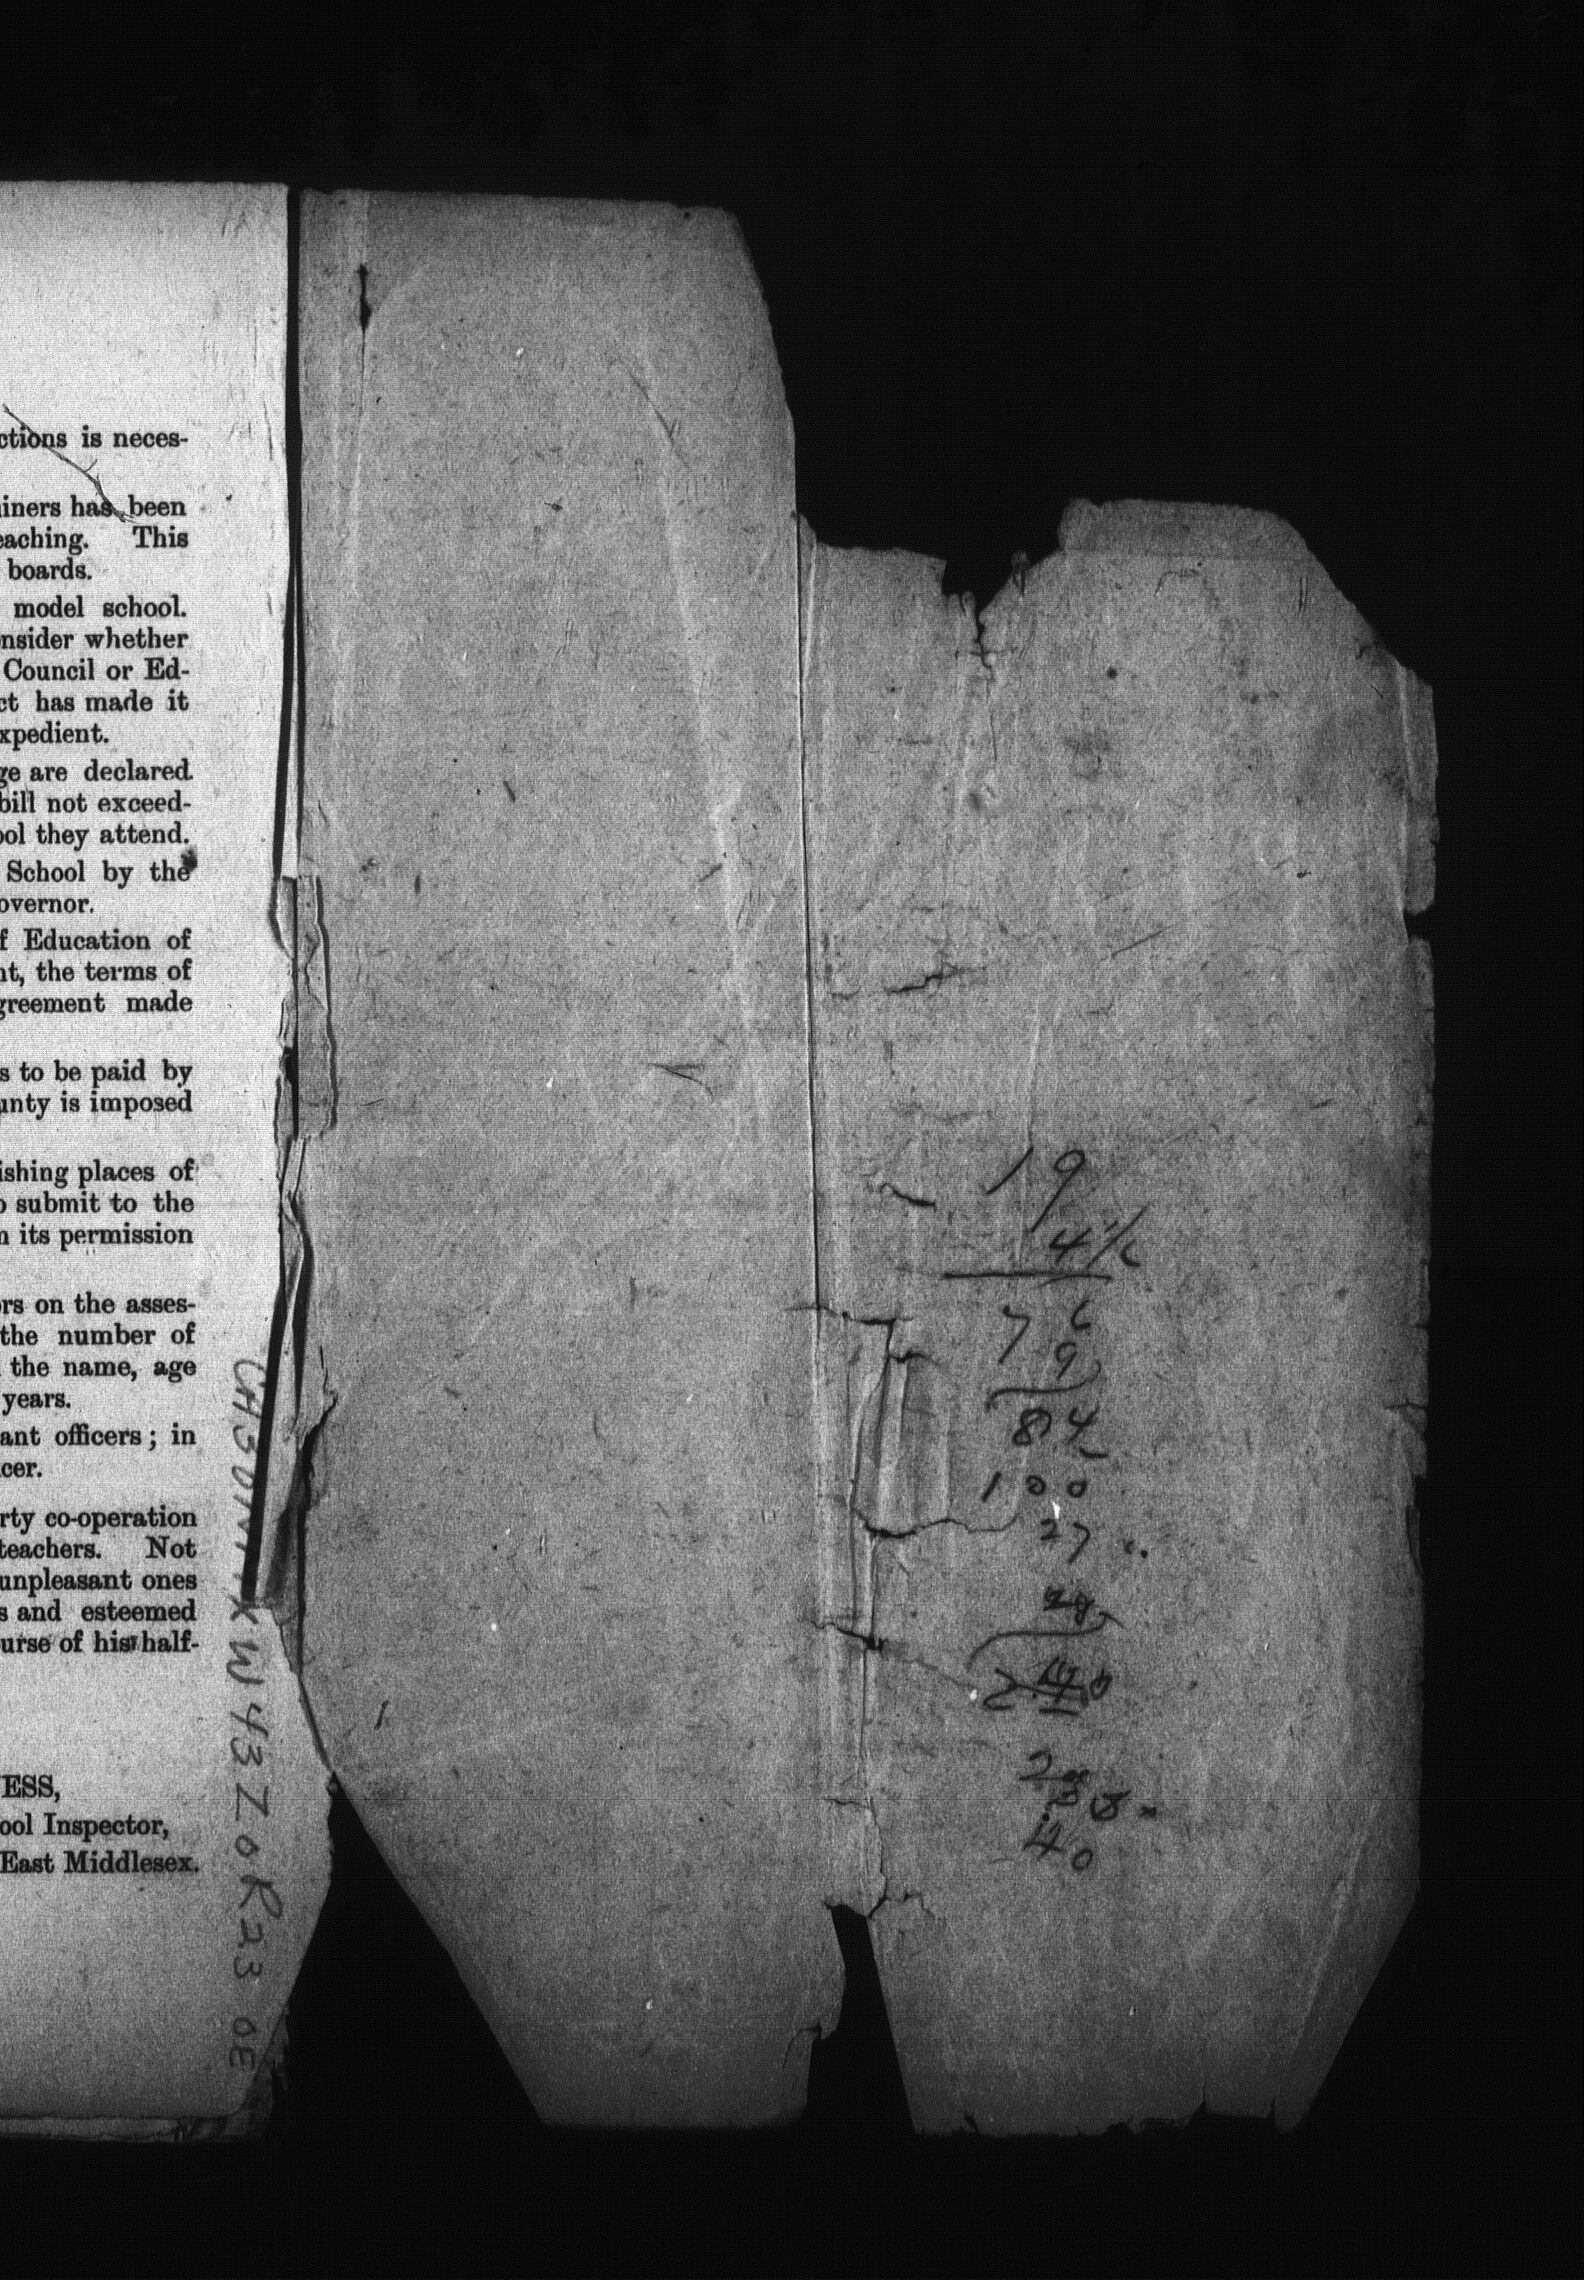 ctions is neces-
iners has been
eaching. This
boards.
model school.
nsider whether
Council or Ed-
ct has made it
xpedient.
ge are declared
bill not exceed-
ool they attend.
School by the
overnor.
f Education of
nt, the terms of
greement made
s to be paid by
unty is imposed
ishing places of
o submit to the
n its permission
ors on the asses-
the number of
the name, age
years.
ant officers; in
cer.
rty co-operation
teachers. Not
unpleasant ones
s and esteemed
urse of his half-
ESS,
ool Inspector,
East Middlesex.
19
4
76
9
84
100
27
40